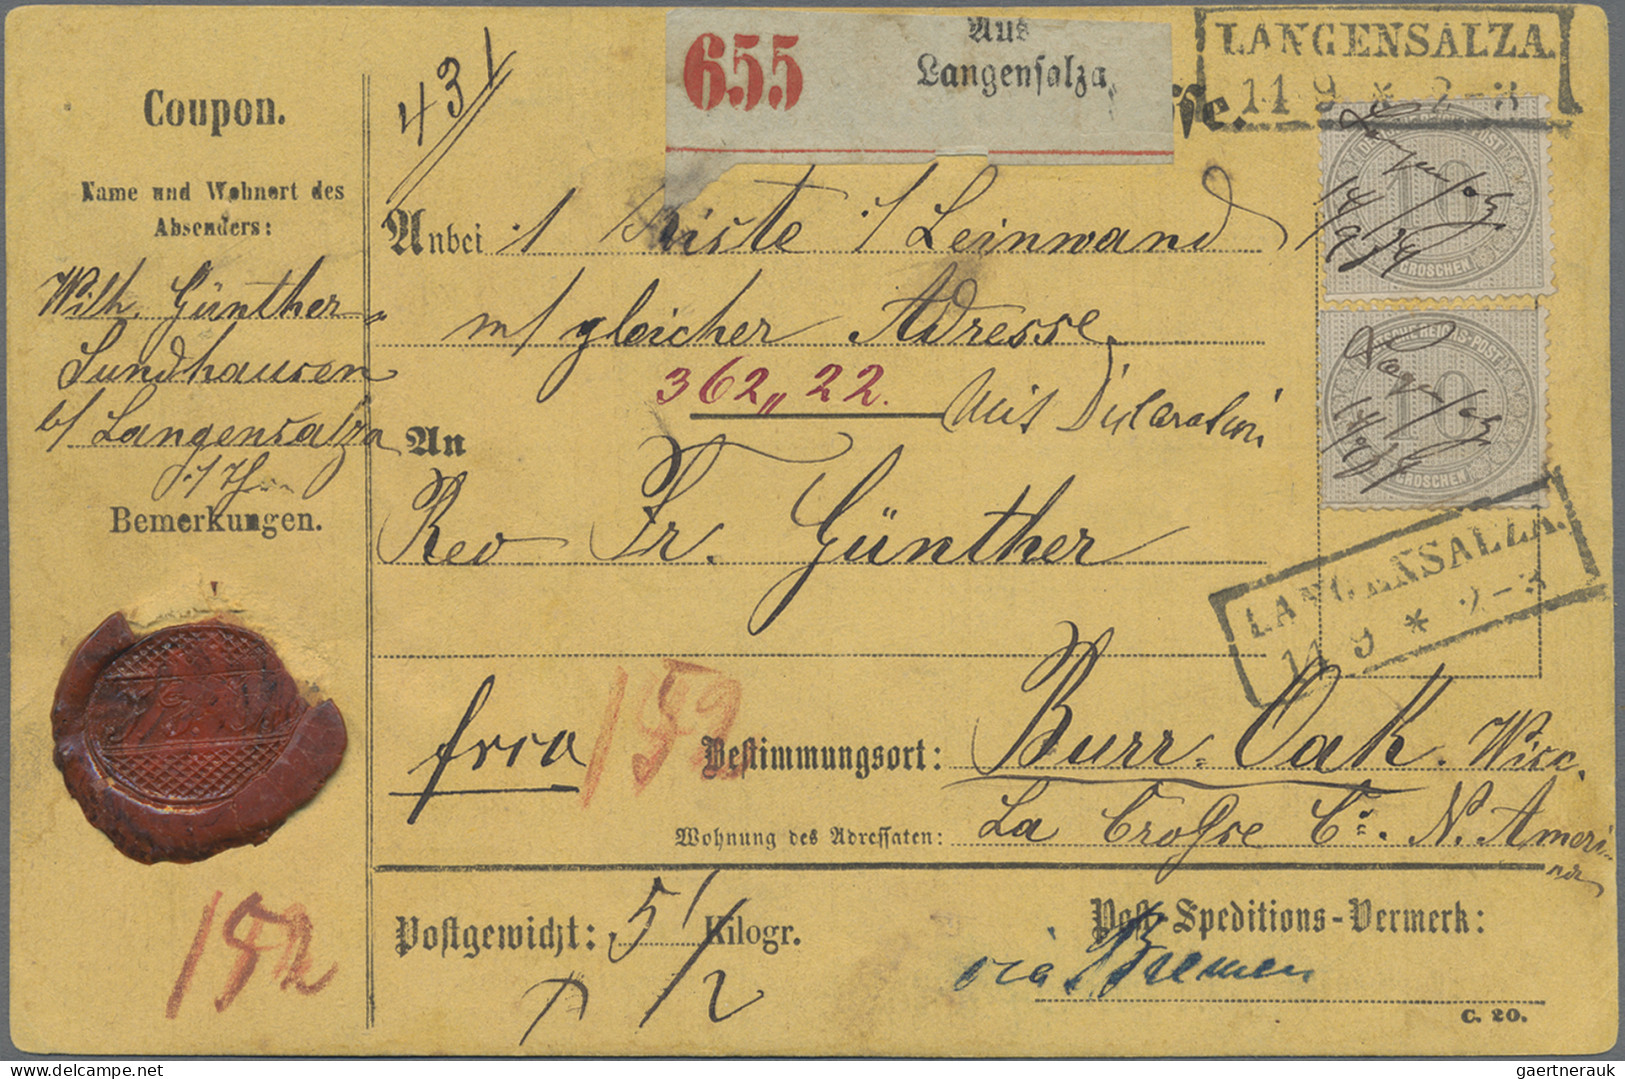 Aus
655 Langensalza
LANGENSALZA.
11 9 * 2-3
Coupon.
Name und Wohnort des
Absenders:
Wilh. Günther
Sundhausen
b/ Langensalza
Bemerkungen.
431
Anbei 1 Kiste / Leinwand
m/ gleicher Adresse
362,,22. Mit Declaration
An
Rev Fr. Günther
DEUTSCHE REICHS-POST
10
GROSCHEN
14/9 74
DEUTSCHE REICHS-POST
10
GROSCHEN
14/9 74
LANGENSALZA.
11 9 * 2-3
frco 152 Bestimmungsort: Burr-Oak. Wisc.
Wohnung des Adressaten: La Crosse Co. N. Amerika
152
Postgewicht: 5 1/2 Kilogr.
Post-Speditions-Vermerk:
via Bremen
C. 20.
gaertnerauk